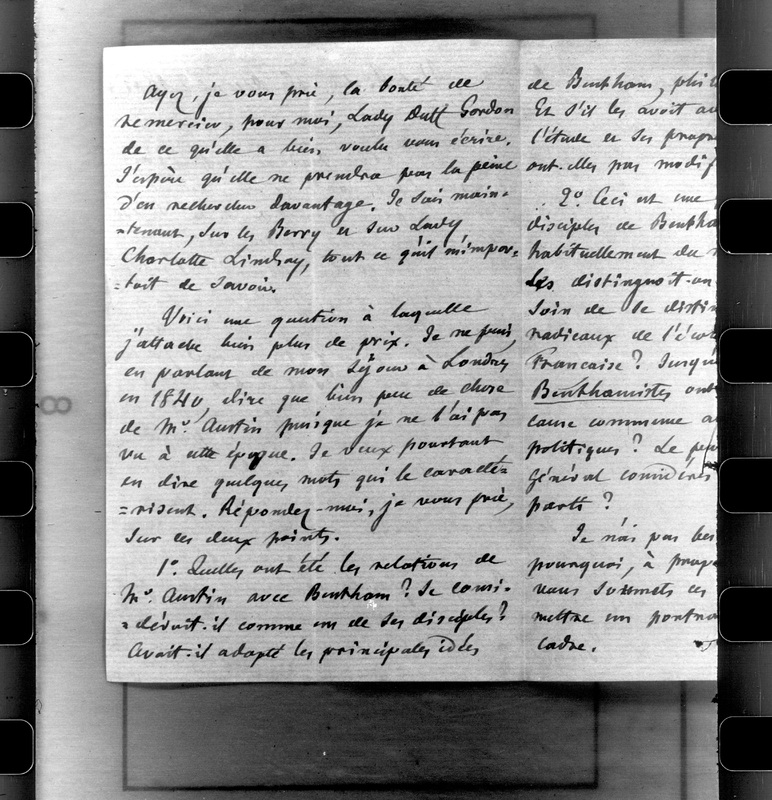 Ayez, je vous prie, la bonté de
remercier, pour moi, Lady Duff Gordon
de ce qu'elle a bien voulu vous écrire.
J'espère qu'elle ne prendra pas la peine
d'en rechercher davantage. Je sais main=
=tenant, sur les Berry et sur Lady
Charlotte Lindsay, tout ce qu'il m'impor=
=tait de savoir.
Voici une question à laquelle
j'attache bien plus de prix. Je ne puis,
en parlant de mon séjour à Londres
en 1840 dire que bien peu de chose
de Mr. Austin puisque je ne l'ai pas
vu à cette époque. Je veux pourtant
en dire quelques mots qui le caracté=
=risent. Répondez-moi, je vous prie,
sur ces deux points.
1o. Quelles ont été les relations de
Mr. Austin avec Bentham? Se consi=
=dérait-il comme un de ses disciples?
Avait-il adopté les principales idées
de Bentham,
Et s'il les avoit
l'étude et ses
ont-elles pas
2o. Ceci est une
disciples de
habituellement du
les distinguoit-on
soin de se
radicaux de
Française?
Benthamistes
cause commune
politiques? Le
général considérés
parti?
Je n'ai pas
pourquoi, à
vous soumets ces
mettre un
cadre.
8